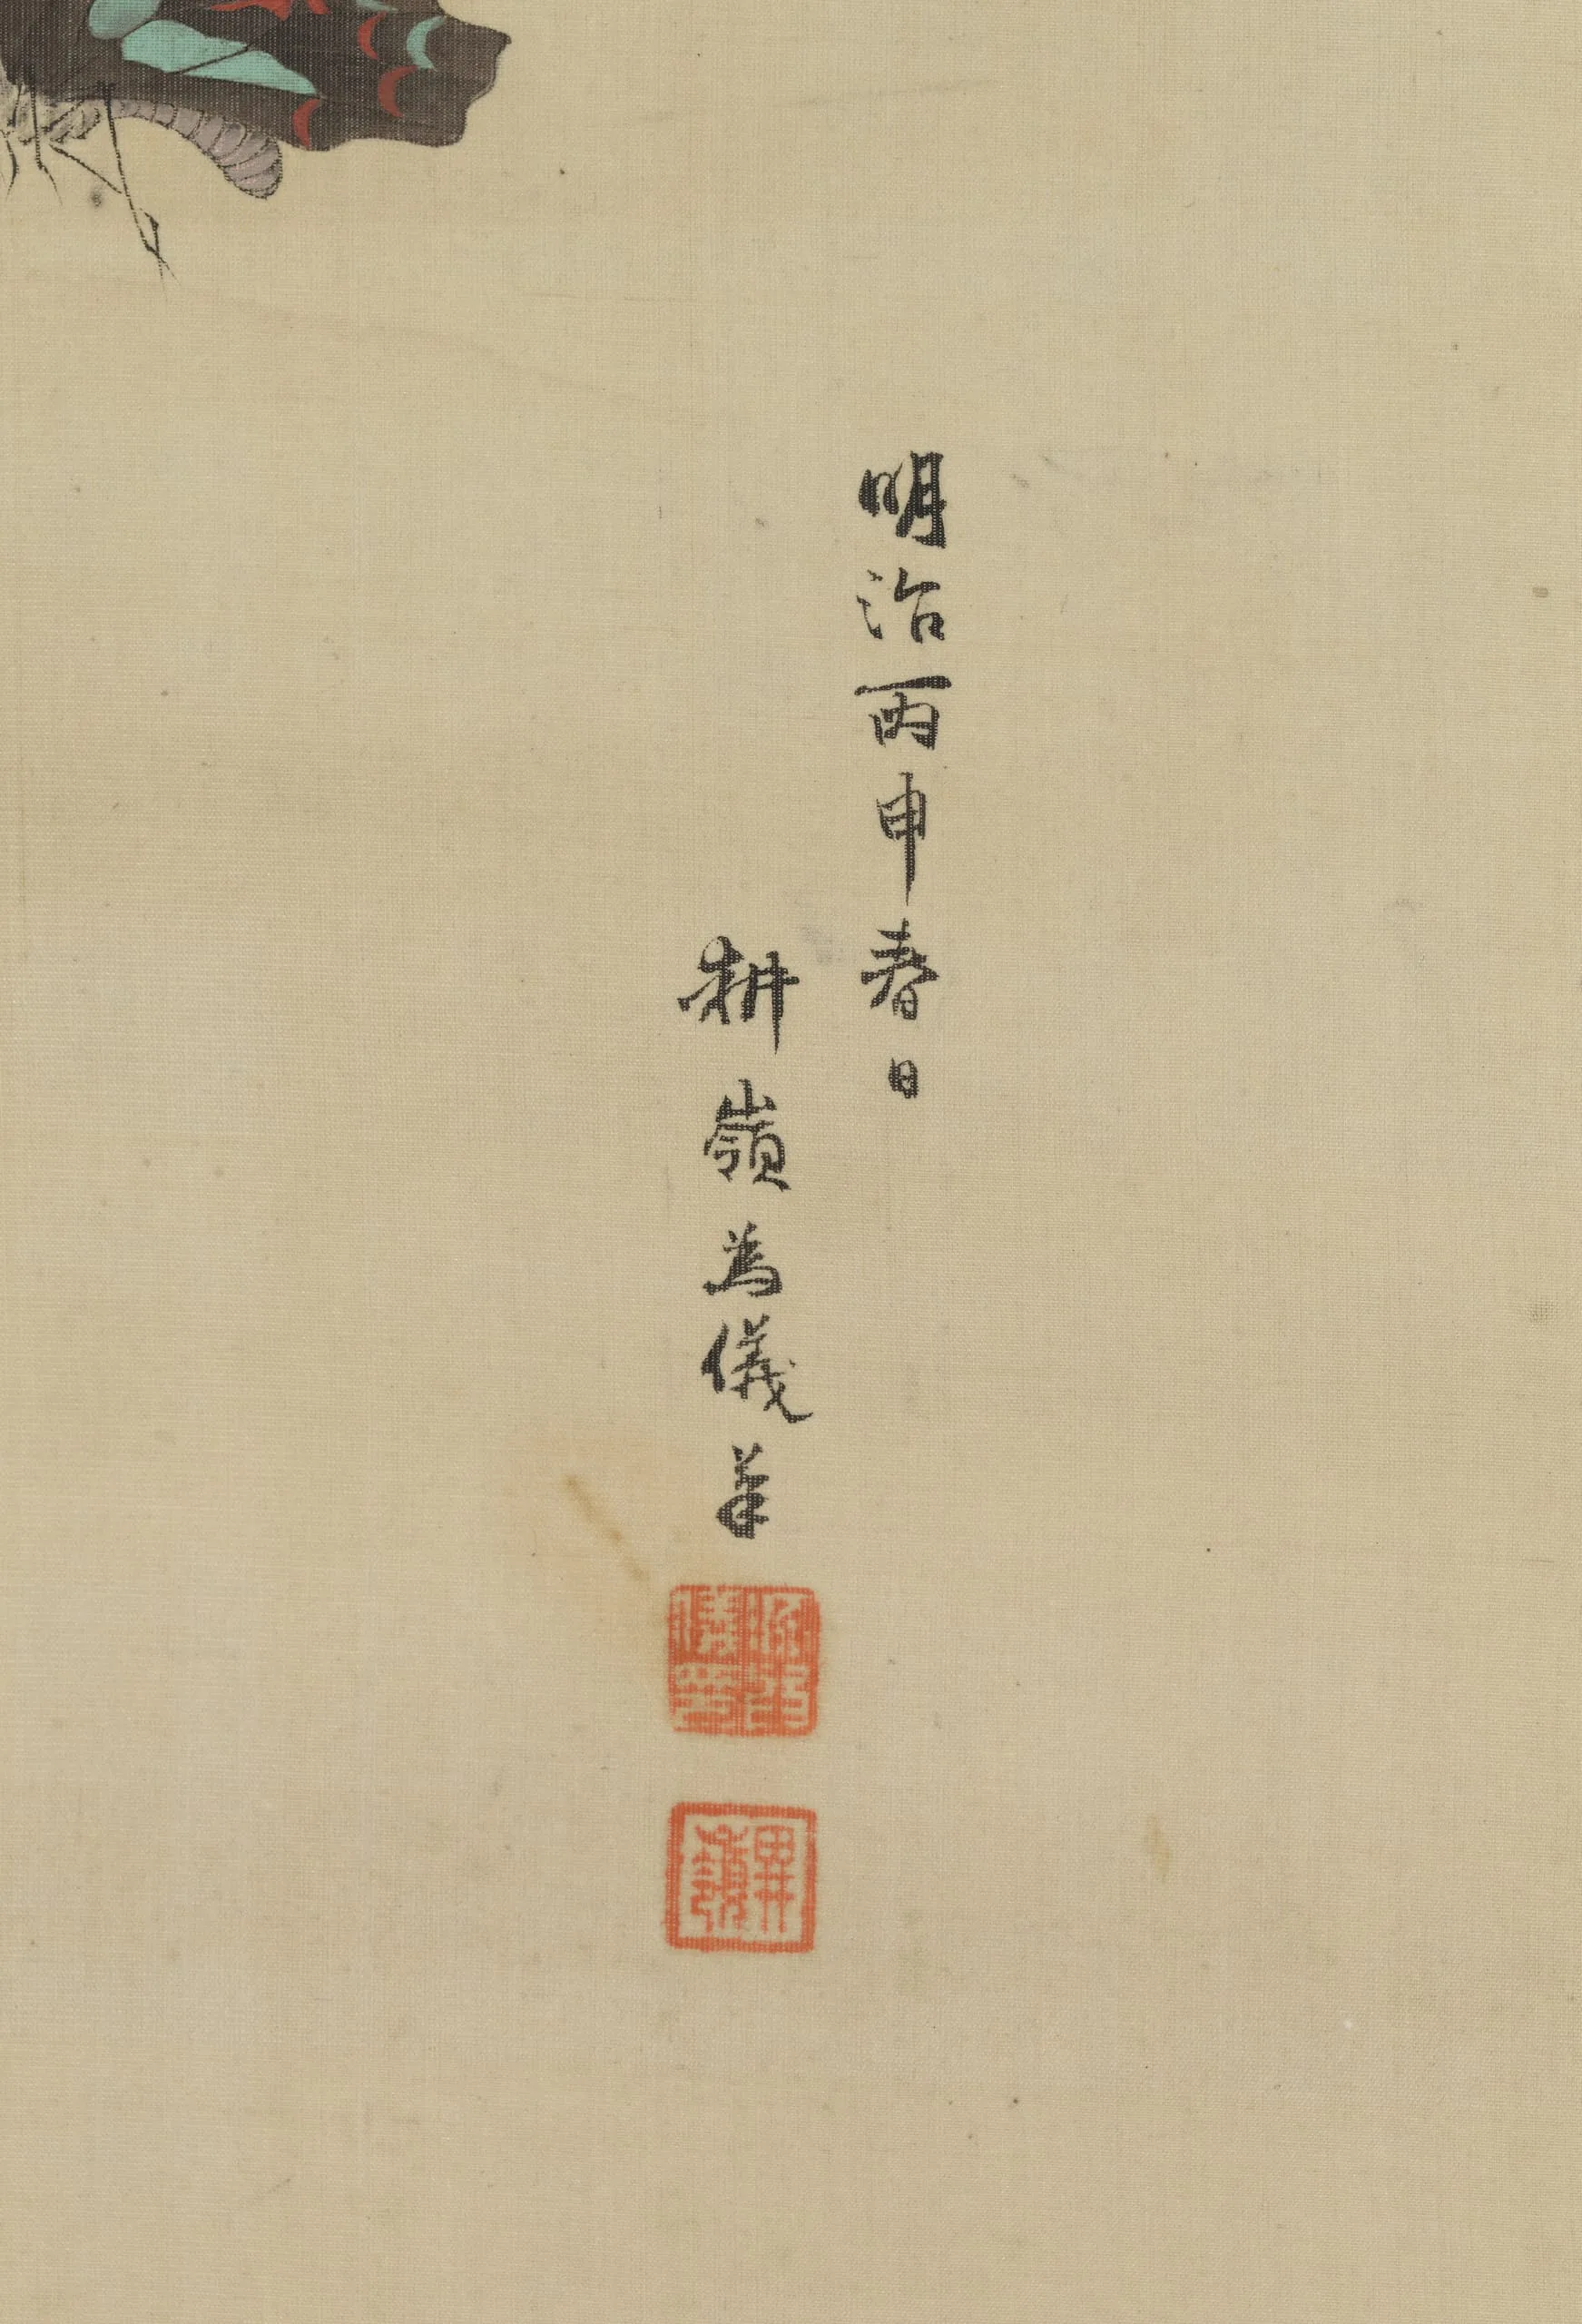 明治丙申春日
耕嶺為儀筆
耕嶺